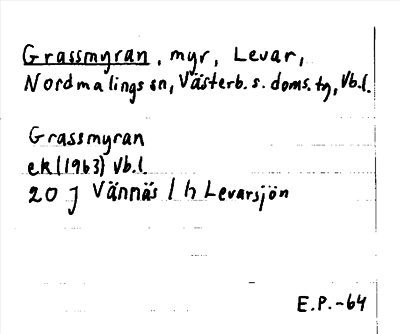 Grassmyran, myr, Levar,
Nordmalings sn, Västerb. s. doms. tg, Vb.l.
Grassmyran
ek (1963) Vb.l.
20 J Vännäs 1 h Levarsjön
E.P.-64